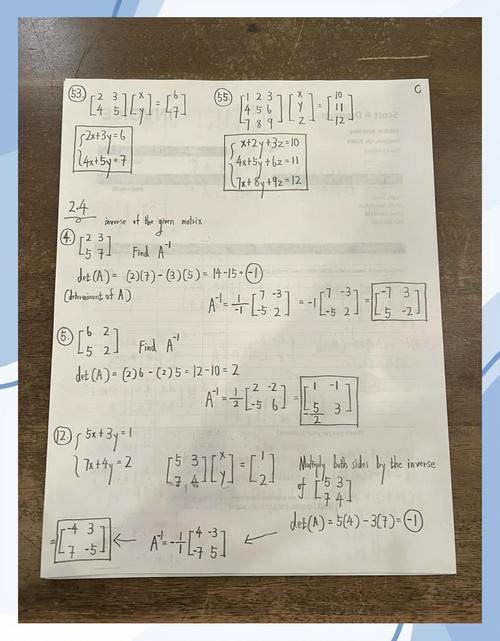 C
53. [2 3; 4 5] [x; y] = [6; 7]
{2x+3y=6
4x+5y=7
55. [1 2 3; 4 5 6; 7 8 9] [x; y; z] = [10; 11; 12]
{x+2y+3z=10
4x+5y+6z=11
7x+8y+9z=12
2.4 inverse of the given matrix
4. [2 3; 5 7] Find A⁻¹
det(A) = (2)(7) - (3)(5) = 14-15 = -1
(determinant of A)
A⁻¹ = 1/-1 [7 -3; -5 2] = -1 [7 -3; -5 2] = [-7 3; 5 -2]
5. [6 2; 5 2] Find A⁻¹
det(A) = (2)6 - (2)5 = 12-10 = 2
A⁻¹ = 1/2 [2 -2; -5 6] = [1 -1; -5/2 3]
12. {5x+3y=1
7x+4y=2
[5 3; 7 4] [x; y] = [1; 2]
Multiply both sides by the inverse
of [5 3; 7 4]
det(A) = 5(4) - 3(7) = -1
A⁻¹ = -1/1 [4 -3; -7 5]
= [-4 3; 7 -5]